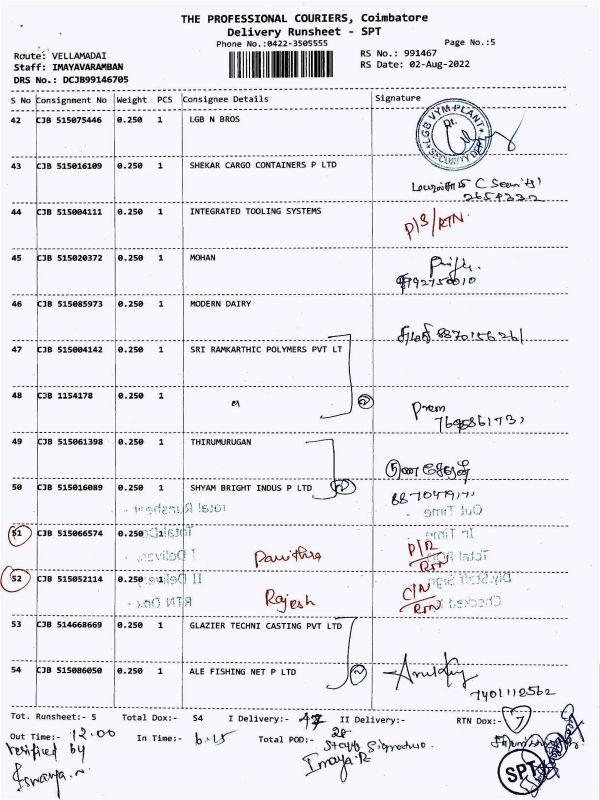 THE PROFESSIONAL COURIERS, Coimbatore
Delivery Runsheet - SPT
Phone No.:0422-3505555
Page No.:5
Route: VELLAMADAI
Staff: IMAYAVARAMBAN
DRS No.: DCJB99146705
RS No.: 991467
RS Date: 02-Aug-2022
S No Consignment No Weight PCS Consignee Details Signature
42 CJB 515075446 0.250 1 LGB N BROS
LGB VYM PLANT
SECURITY DEPT
43 CJB 515016109 0.250 1 SHEKAR CARGO CONTAINERS P LTD
2654332
44 CJB 515004111 0.250 1 INTEGRATED TOOLING SYSTEMS
P/S/RTN
45 CJB 515020372 0.250 1 MOHAN
46 CJB 515085973 0.250 1 MODERN DAIRY
47 CJB 515004142 0.250 1 SRI RAMKARTHIC POLYMERS PVT LT
48 CJB 1154178 0.250 1
2
Prem
49 CJB 515061398 0.250 1 THIRUMURUGAN
50 CJB 515016089 0.250 1 SHYAM BRIGHT INDUS P LTD
2
51 CJB 515066574 0.250 1 Pavithra
RTN
52 CJB 515052114 0.250 1 Rajesh
C/N
RTN
53 CJB 514668669 0.250 1 GLAZIER TECHNI CASTING PVT LTD
54 CJB 515086050 0.250 1 ALE FISHING NET P LTD
2
7401112562
Tot. Runsheet:- 5 Total Dox:- 54 I Delivery:- 47 II Delivery:- RTN Dox:- 7
Out Time:- 12.00 In Time:- 6.15 Total POD:- 28
Verified by
Staff Signature.
Imaya.R
SPT